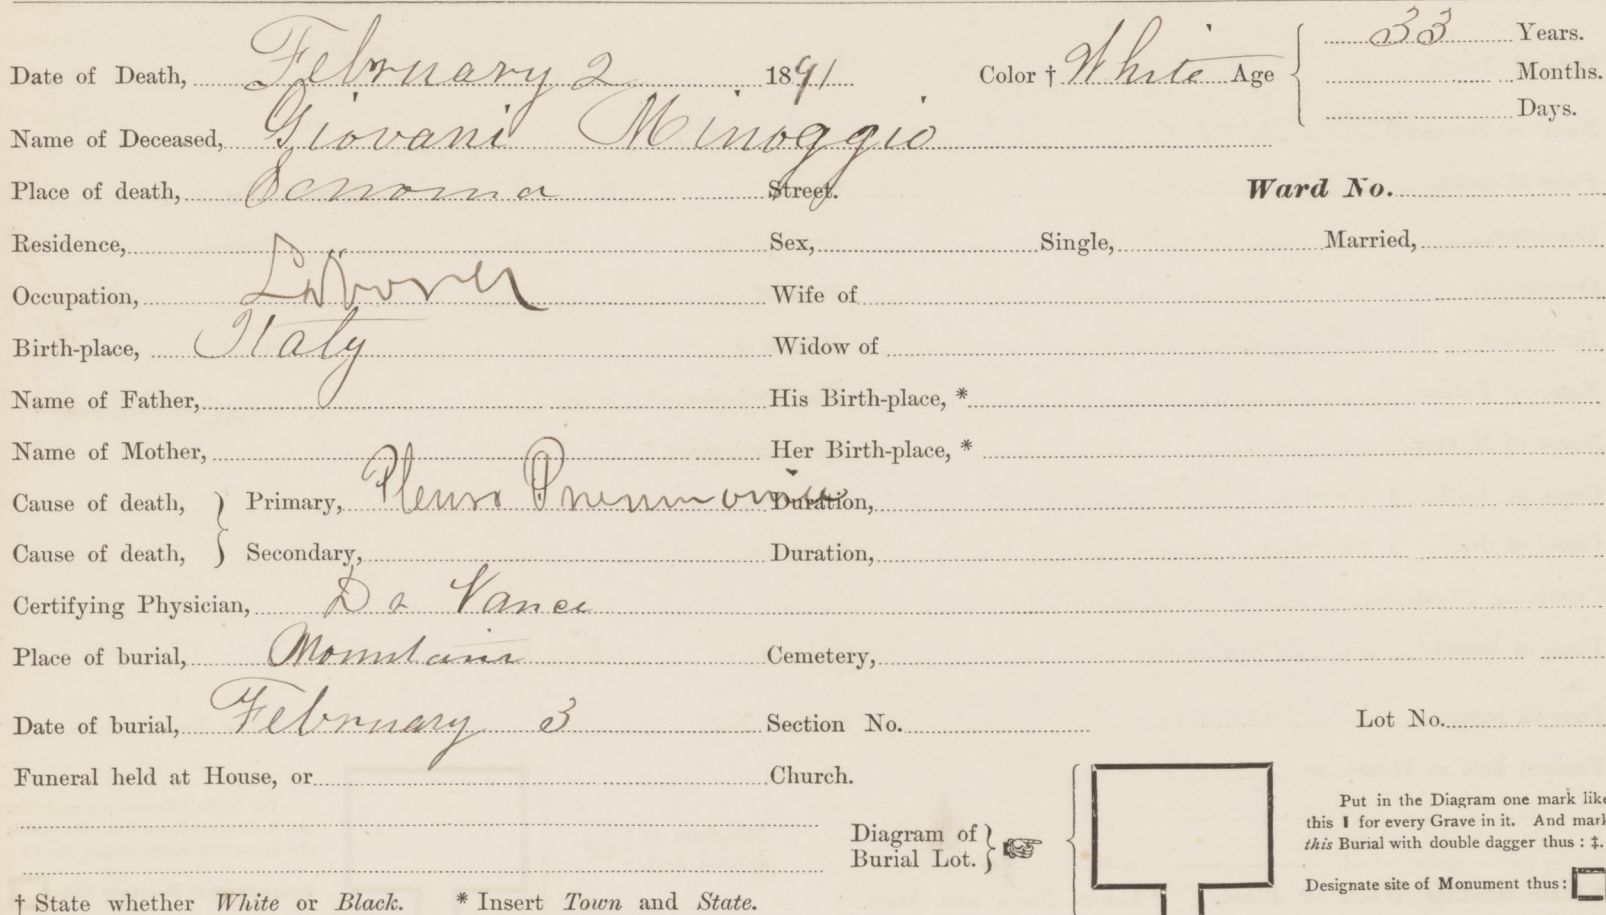 Date of Death, February 2 1891 Color † White Age 33 Years.
Months.
Days.
Name of Deceased, Giovani Minoggio
Place of death, Sonoma Street. Ward No.
Residence, Sex, Single, Married,
Occupation, Laborer Wife of
Birth-place, Italy Widow of
Name of Father, His Birth-place, *
Name of Mother, Her Birth-place, *
Cause of death, } Primary, Pleuro Pneumonia Duration,
Cause of death, } Secondary, Duration,
Certifying Physician, Dr Vance
Place of burial, Mountain Cemetery,
Date of burial, February 3 Section No. Lot No.
Funeral held at House, or Church.
Diagram of
Burial Lot. }
Put in the Diagram one mark like
this I for every Grave in it. And mark
this Burial with double dagger thus : ‡.
Designate site of Monument thus :
† State whether White or Black. * Insert Town and State.